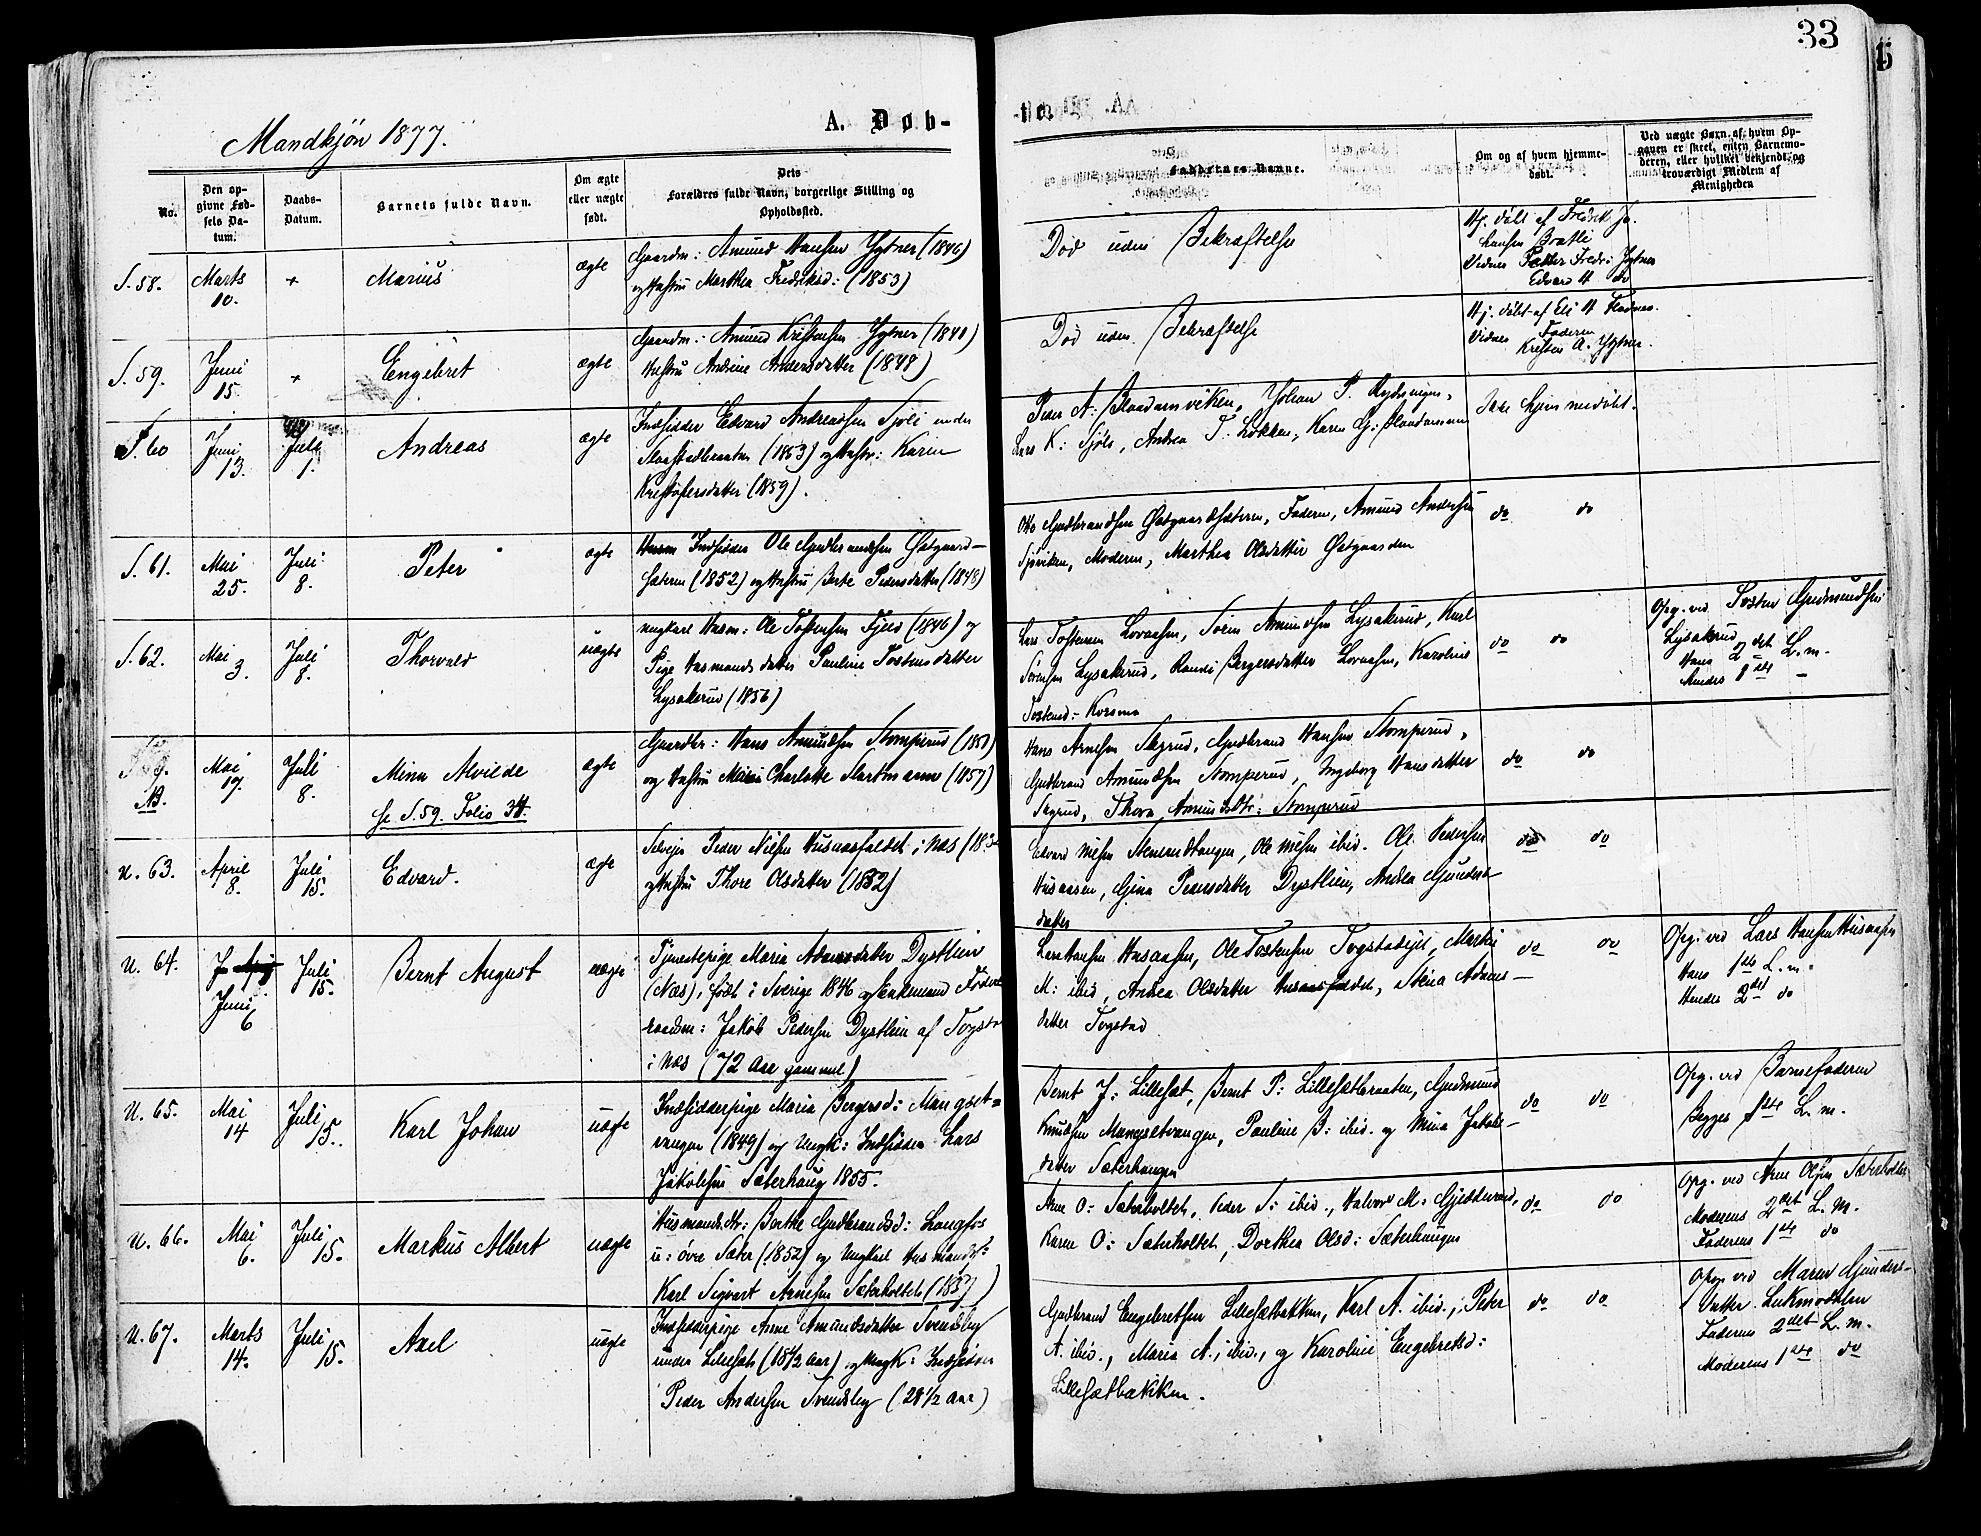 33
15
A. Døb-
-te.
Mandkjøn 1877.
No.
Den op-
givne Fød-
sels Da-
tum.
Daabs-
Datum.
Barnets fulde Navn.
Om ægte
eller uægte
født.
Dets
Forældres fulde Navn, borgerlige Stilling og
Opholdssted.
Faddernes Navne.
Om og af hvem hjemme-
døbt.
Ved uægte Børn, af hvem Op-
gaven er skeet, enten Barnemo-
deren, eller hvilket bekjendt og
troværdigt Medlem af
Menigheden
S. 58.
Marts
10.
+
Marius
ægte
Gaardm: Amund Hansen Ygtner (1846)
og Hustru Marthea Fredriksd: (1853)
Død uden Bekræftelse
Hj. døbt af Fredrik Jo-
hansen Bratli
Vidner Fredr: Ygtner
Edvard H do
S. 59.
Juni
15.
+
Engebret
ægte
Gaardm: Amund Kristensen Ygtner (1840)
Hustru Andrine Andersdatter (1848)
Død uden Bekræftelse
Hj. døbt af Eli H Flodnes.
Vidner Faderen
Kristen A. Ygtner.
S. 60
Juni
13.
Juli
1.
Andreas
ægte
Indsidder Edvard Andreassen Sjøli under
(1853) og Hustr: Karen
Kristofersdatter (1859).
Peder A: Haadamviken, Johan P.
Lars K: Sjøli, Andrea T. Løkken, Karen G:
Ikke hjemmedøbt.
S. 61.
Mai
25.
Juli
8.
Peter
ægte
Indsidder Ole Gudbrandsen Østgaard-
sæteren (1852) og Hustru Berte Pedersdatter (1848)
Otto Gudbrandsen Østgaardsæteren, Faderen, Amund Andersen
Sjøviken, Moderen, Marthea Olsdatter Østgaarden
do do
S. 62.
Mai
3.
Juli
8.
Thorvald
uægte
Ungkarl Husm: Ole Tostensen Fjeld (1846) og
Pige Husmandsdatter Pauline Tostensdatter
Lysakerud (1856)
Lars Tostensen Lovaasen, Sören Amundsen Lysakerud, Karl
Sörensen Lysakerud, Randi Bergersdatter Lovaasen, Karoline
Tostensd: Korsmo
do do
Opg. ved Tosten Gudmundsen
Lysakrud
Hans 2det L.m.
Hendes 1ste -
NB.
Mai
17.
Juli
8.
Mina Alvilde
se S. 59. Folio 34.
ægte
Gaardbr: Hans Amundsen Stomperud (1850)
og Hustru Charlotte Hartmann (1857)
Hans Arnesen Skgrud, Gudbrand Hansen Stomperud,
Gudbrand Amundsen Stomperud, Ingeborg Hansdatter
Skgrud, Thora Amundsdtr: Stomperud
do do
U. 63.
April
8.
Juli
15.
Edvard.
ægte
Selvejr Peder Nilsen Husaasfaldet i Næs
og Hustru Thore Olsdatter (1832)
Edvard Nilsen Stenerudhaugen, Ole Nilsen ibid. Ole Pedersen
Husaasen, Gina Pedersdatter Dystlien, Andrea Gunders-
datter
do do
U. 64.
Juni
6
Juli
15.
Bernt August
uægte
Tjenestepige Maria Adamsdatter Dystlien
(Næs), født i Sverige 1846 og Enkemand
Jakob Pedersen Dystlien af Togst
i Næs (72 Aar gammel)
Lars Hansen Husaasen, Ole Tostensen Togstadeje, Martin
M: ibid, Andrea Olsdatter Husaasfaldet, Stina Adams-
datter Togstad
do do
Opg. ved Lars Hansen Husaasen
Hans 1ste L.m.
Hendes 2det do
U. 65.
Mai
14
Juli
15.
Karl Johan
uægte
Indsidderpige Maria Bergersd: Mangset-
vangen (1849) og Ungk: Indsidder Lars
Jakobsen Sæterhaug 1855.
Bernt J: Lillesæt, Bernt P: Lillesætbraaten, Gudmund
Knudsen Mangsetvangen, Pauline B: ibid. og Mina Jakobs-
datter Sæterhaugen
do do
Opg. ved Barnefaderen
Begges 1ste L.m.
U. 66.
Mai
6.
Juli
15.
Markus Albert
uægte
Husmandsdtr: Berthe Gudbrandsd: Langfos
u: øvre Sæter (1852) og Ungkarl Husmands:
Karl Sigvart Arnesen Sæterholtet (1857)
Arne O: Sæterholtet, Peder S: ibid., Halvor M: Gjedderud,
Karen O: Sæterholtet, Dorthea Olsd: Sæterhaugen
do do
Opg. ved Arne Olsen Sæterholtet
Moderens 2det L.M.
Faderens 1ste do
U. 67.
Marts
14.
Juli
15.
Axel
uægte
Indsidderpige Anne Amundsdatter Svendsby
under Lillesæt (18 1/2 Aar) og Ungk: Indsidder
Peder Andersen Svendsby (28 1/2 Aar)
Gudbrand Engebretsen Lillesætbakken, Karl A. ibid.; Peter
A. ibid., Maria A., ibid., og Karoline Engebretsd:
Lillesætbakken.
do do
Opg. ved Maren Gunders-
datter Lukmodalen
Faderens 2det L.m.
Moderens 1ste do